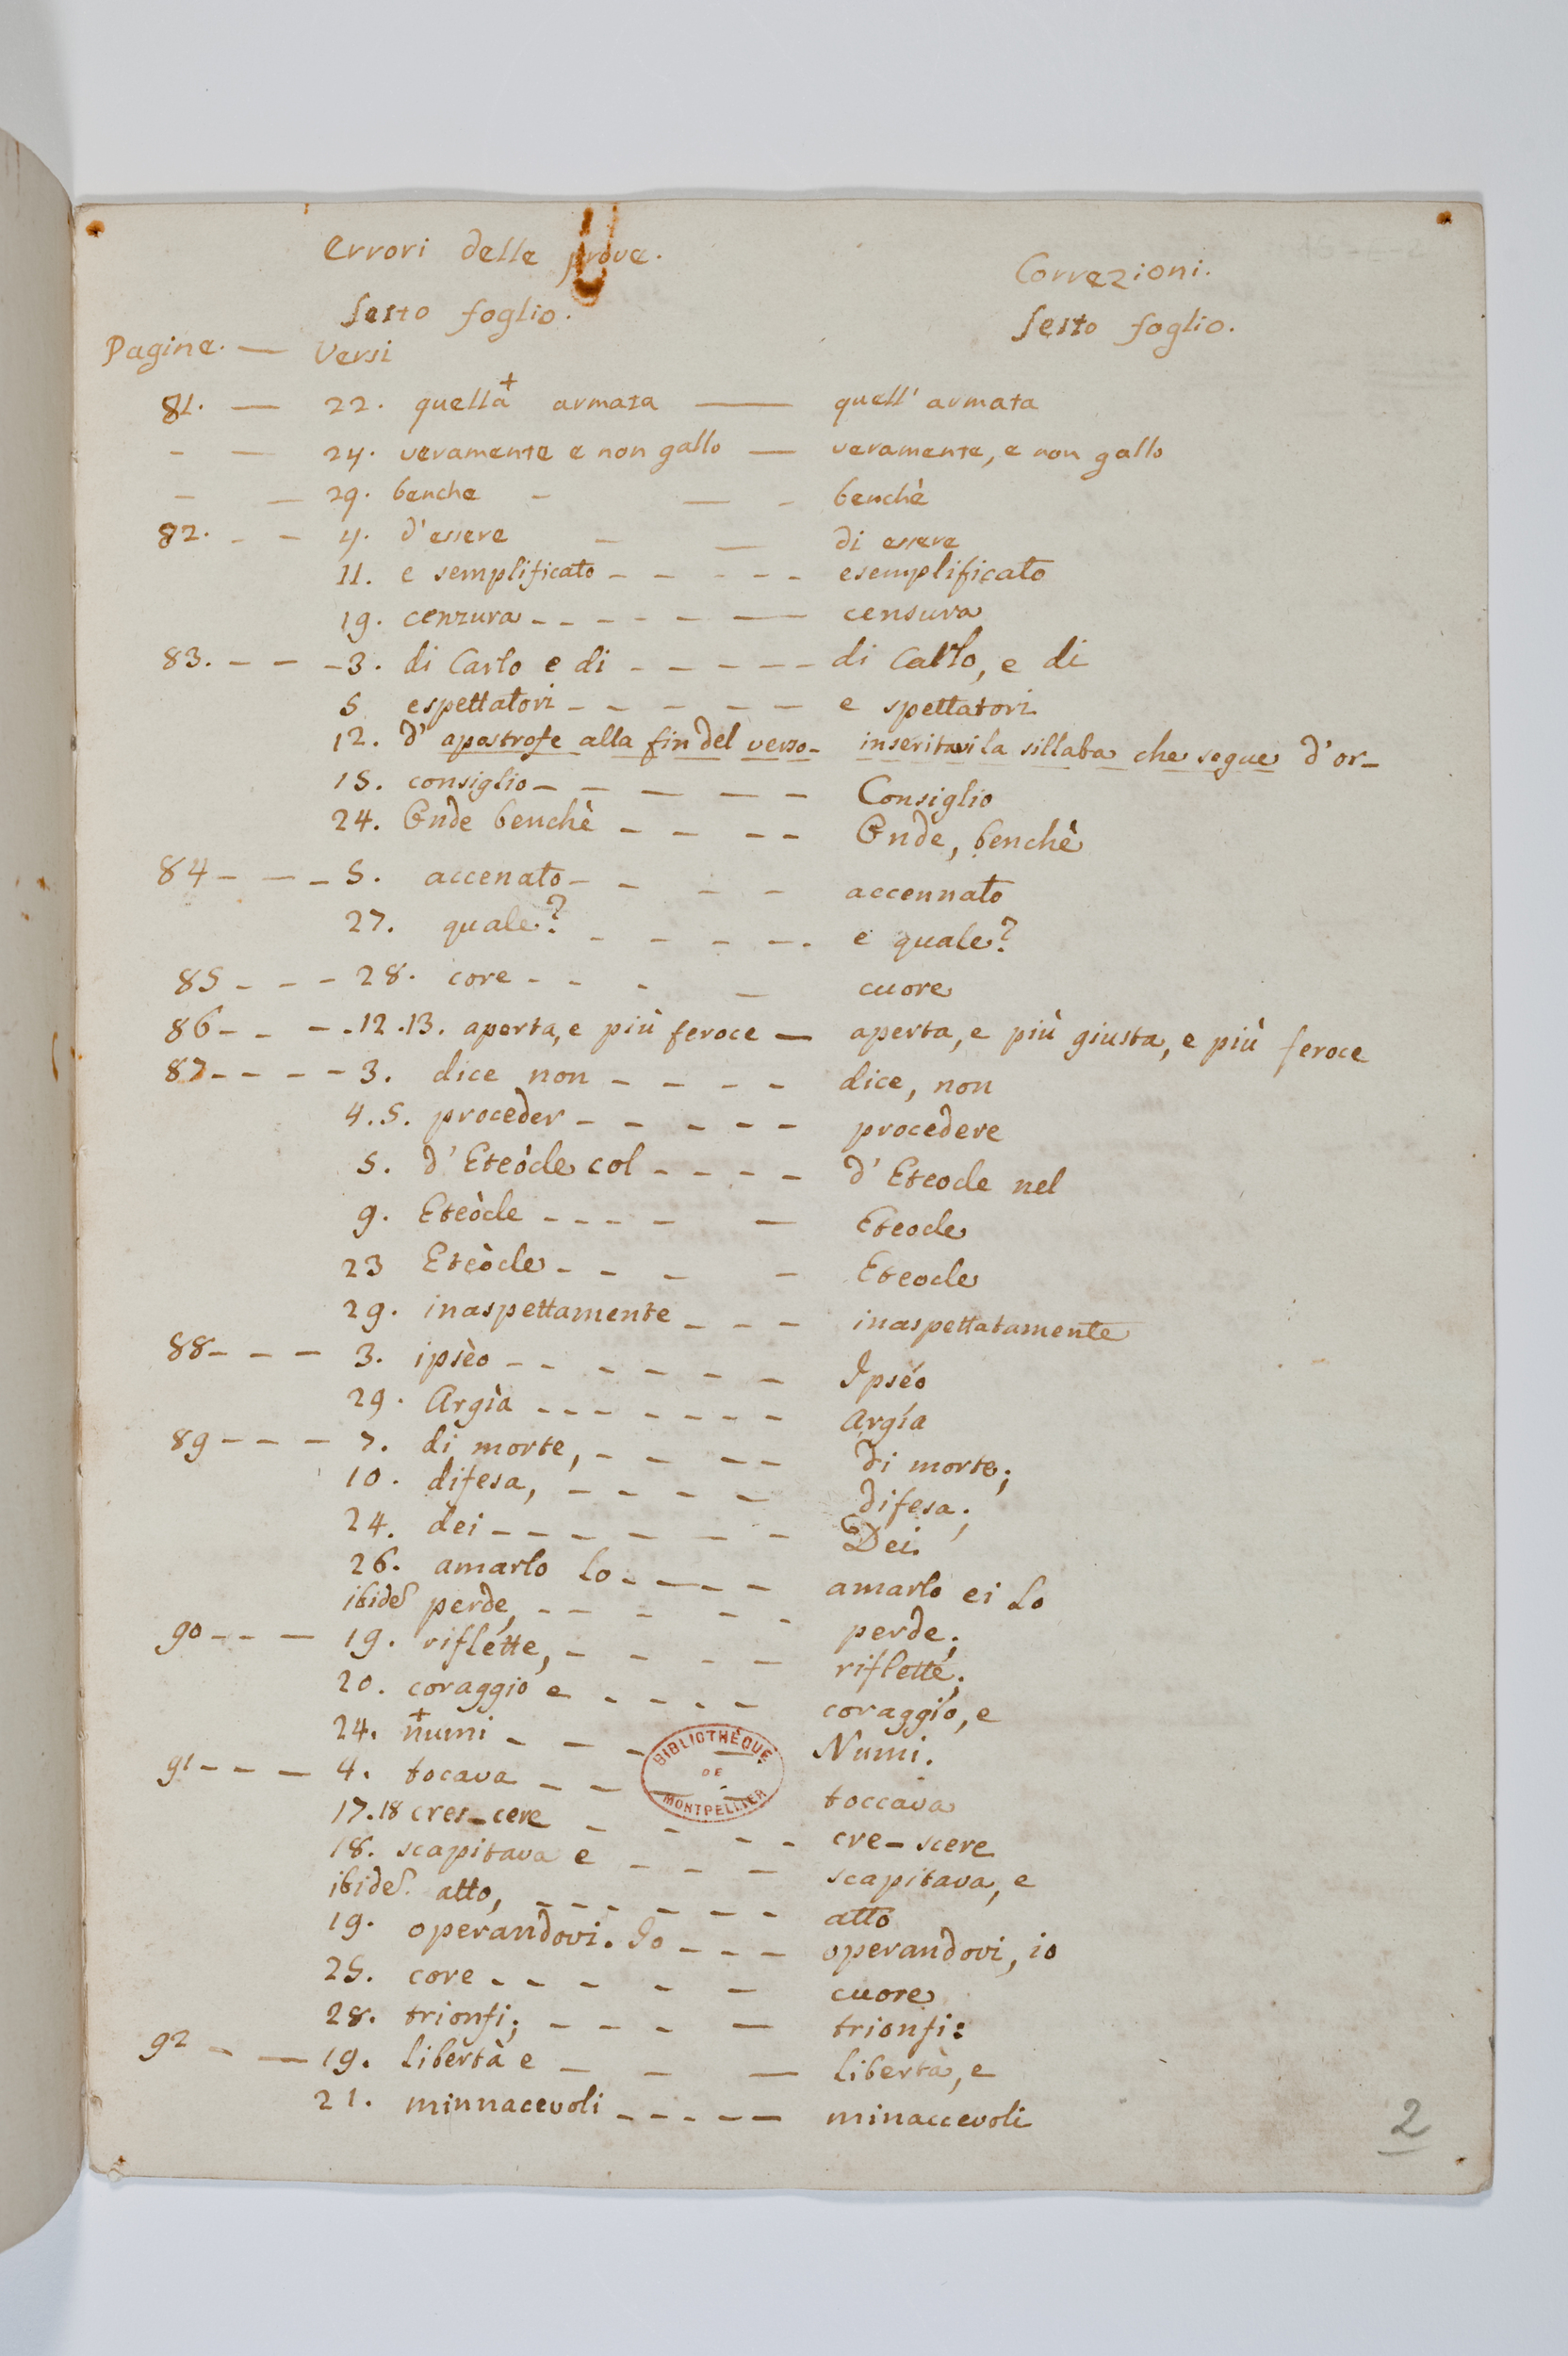 Errori delle prove. Correzioni.
Sesto foglio. Sesto foglio.
Pagine. — Versi
81. — 22. quella+ armata — quell' armata
- — 24. veramente e non gallo — veramente, e non gallo
- — 29. benche - — - benchè
82. - - 4. d'essere - — di essere
11. e semplificato - - - - - esemplificato
19. cenzura - - - - - — censura
83. - - - 3. di Carlo e di - - - - - di Carlo, e di
5 espettatori - - - - - e spettatori
12. d' apostrofe alla fin del verso - inseritavi la sillaba che segue d'or-
15. consiglio - - - - - Consiglio
24. Onde benchè - - - - Onde, benchè
84 - - - 5. accenato - - - - accennato
27. quale? - - - - . e quale?
85 - - - 28. core - - - - cuore
86 - - - . 12.13. aperta, e più feroce — aperta, e più giusta, e più feroce
87 - - - - 3. dice non - - - - dice, non
4.5. proceder - - - - - procedere
5. d'Eteòcle col - - - - d'Eteocle nel
9. Eteòcle - - - - — Eteocle
23 Eteòcle - - - - Eteocle
29. inaspettamente - - - inaspettatamente
88 - - - 3. ipsèo - - - - - - Ipséo
29. Argìa - - - - - - - Argía
89 - - - 7. di morte, - - - - di morte;
10. difesa, - - - - difesa;
24. dei - - - - - - - Dei.
26. amarlo lo - - - - amarlo ei lo
ibide perde, - - - - - perde;
90 - - - 19. riflette, - - - - riflette;
20. coraggio e - - - - coraggio, e
24. +numi - - - - Numi.
91 - - - 4. tocava - - - - toccava
17.18 cres-cere - - - - cre-scere
18. scapitava e - - - scapitava, e
ibide. atto, - - - - - - atto
19. operandovi. Io - - - operandovi, io
25. core - - - - - cuore
28. trionfi; - - - — trionfi:
92 - — 19. libertà e - - — libertà, e
21. minnacevoli - - - - - minaccevoli
BIBLIOTHÈQUE
DE
MONTPELLIER
2